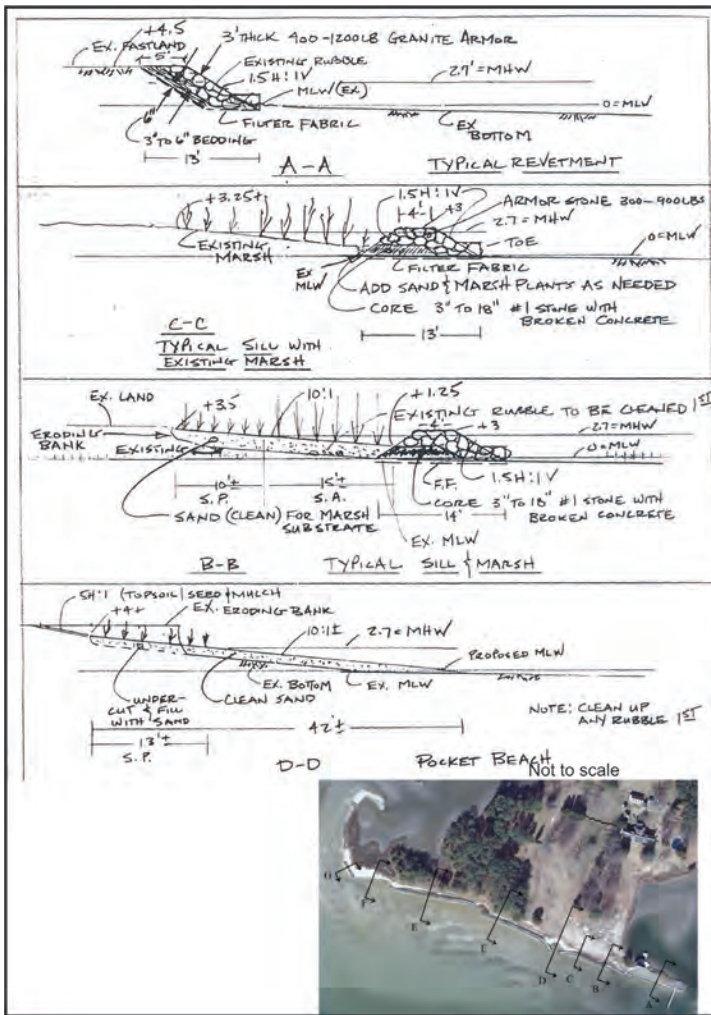 +4.5
EX. FASTLAND
5'
3' THICK 400-1200LB GRANITE ARMOR
EXISTING RUBBLE
1.5H:1V
MLW (EX)
2.7' = MHW
0=MLW
FILTER FABRIC
EX BOTTOM
6"
3" TO 6" BEDDING
13'
A-A
TYPICAL REVETMENT
+3.25±
1.5H:1V
4'
+3
ARMOR STONE 300-900LBS
2.7=MHW
EXISTING MARSH
TOE
0=MLW
EX MLW
FILTER FABRIC
ADD SAND & MARSH PLANTS AS NEEDED
CORE 3" TO 18" #1 STONE WITH
BROKEN CONCRETE
13'
C-C
TYPICAL SILL WITH
EXISTING MARSH
EX. LAND
+3.5
10:1
+1.25
EXISTING RUBBLE TO BE CLEANED 1ST
4'
+3
2.7=MHW
ERODING BANK
EXISTING
0=MLW
10'±
S.P.
15'±
S.A.
F.F.
1.5H:1V
CORE 3" TO 18" #1 STONE WITH
BROKEN CONCRETE
14'
SAND (CLEAN) FOR MARSH
SUBSTRATE
EX. MLW
B-B
TYPICAL SILL & MARSH
5H:1 (TOPSOIL) SEED & MULCH
+4±
EX. ERODING BANK
10:1±
2.7=MHW
PROPOSED MLW
UNDER-
CUT & FILL
WITH SAND
CLEAN SAND
EX. BOTTOM
EX. MLW
NOTE: CLEAN UP
ANY RUBBLE 1ST
42'±
13'±
S.P.
D-D
POCKET BEACH
Not to scale
F
E
E
D
C
B
A